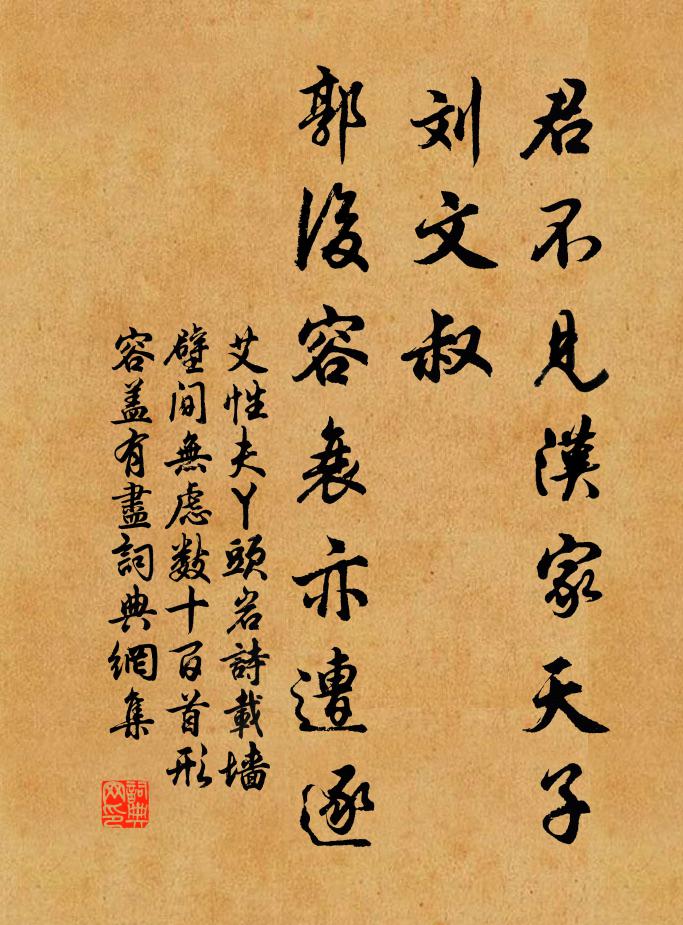 君不見漢家天子
刘文叔
郭後容衰亦遭逐
艾性夫丫頭岩詩載墙
壁间無慮数十百首形
容盖有盡詞典網集
詞典
网印